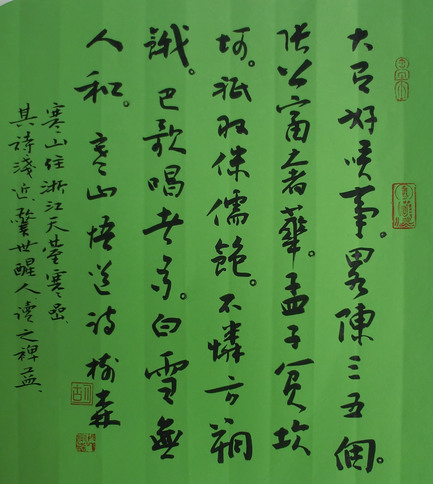 大有好咲事。畧陳三五個。
張公富奢華。孟子貧坎
坷。祇取侏儒飽。不憐方朔
餓。巴歌唱者多。白雪無
人和。寒山悟道詩 樹森
寒山住浙江天臺寒嵒
其詩淺近警世醒人讀之裨益